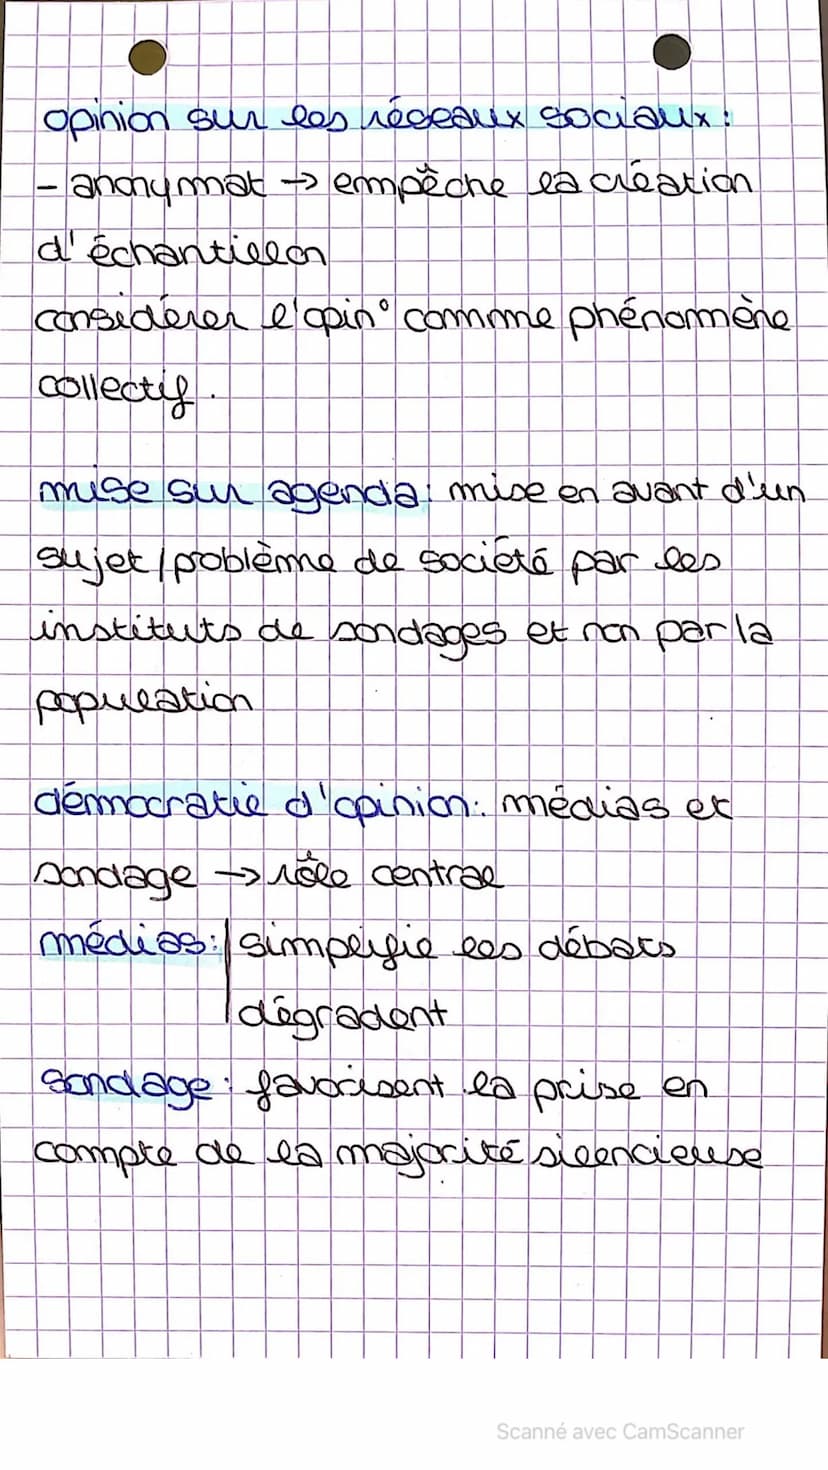 opinion sur les réseaux sociaux :
- anonymat → empêche la création
d'échantillon
considérer l'opin° comme phénomène
collectif.
mise sur agenda : mise en avant d'un
sujet/problème de société par les
instituts de sondages et non par la
population
démocratie d'opinion : médias et
sondage → rôle central
médias : simplifie les débats
dégradent
sondage : favorisent la prise en
compte de la majorité silencieuse
Scanné avec CamScanner